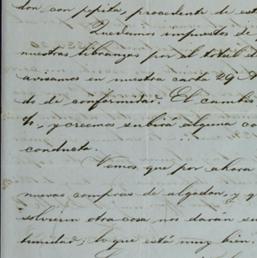 don con pepita, procedente de est
Quedamos impuestos de
nuestras libranzas por el total d
avisamos en nuestra carta 29 A
do de conformidad. El cambio
%, y creemos subirá alguna co
conducta.
Vemos que por ahora
nuevas compras de algodon, y q
solvieren otra cosa nos darán su
tunidad; lo que está muy bien.